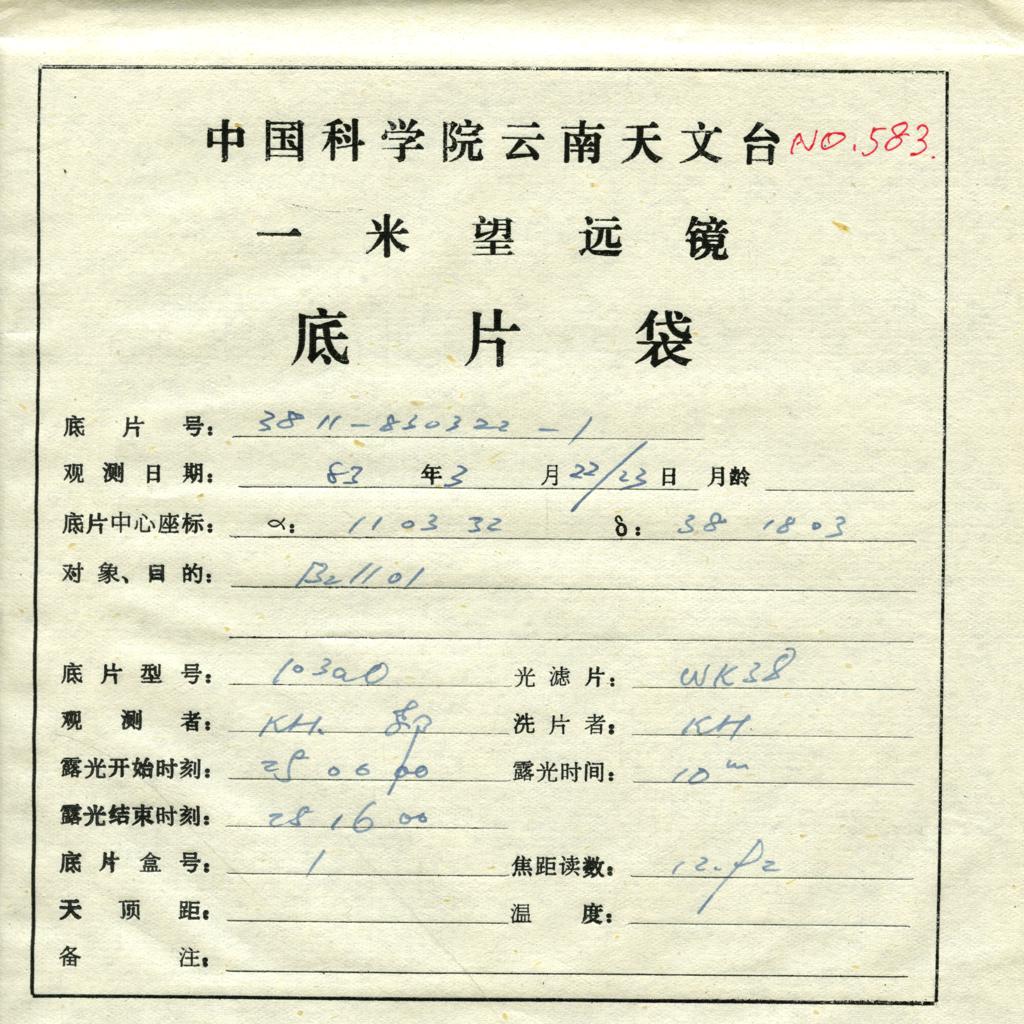 中国科学院云南天文台 NO.583.
一米望远镜
底片袋
底片号: 3811-830322-1
观测日期: 83 年 3 月 22/23 日 月龄
底片中心座标: α: 11 03 32 δ: 38 18 03
对象、目的: B2 1101
底片型号: 103aO 光滤片: WK38
观测者: KH. 郭 洗片者: KH
露光开始时刻: 25 06 00 露光时间: 10m
露光结束时刻: 25 16 00
底片盒号: 1 焦距读数:
天顶距: 温度:
备注: